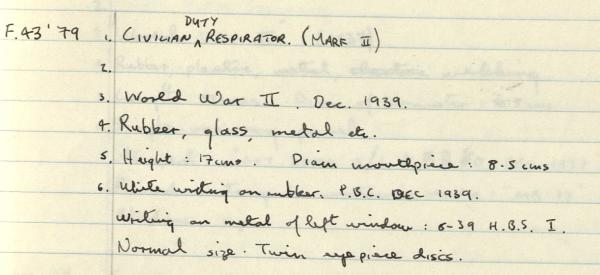 F.43'79 1. CIVILIAN DUTY RESPIRATOR. (MARK II)
2.
3. World War II. Dec. 1939.
4. Rubber, glass, metal etc.
5. Height: 17cms. Diam mouthpiece: 8.5 cms
6. White writing on rubber. P.B.C. DEC 1939.
Writing on metal of left window: 6-39 H.B.S. I.
Normal size. Twin eyepiece discs.